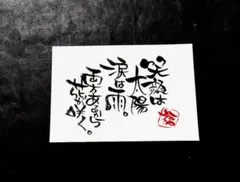 笑顔は
太陽
涙は雨。
両方あるから
花が咲く。